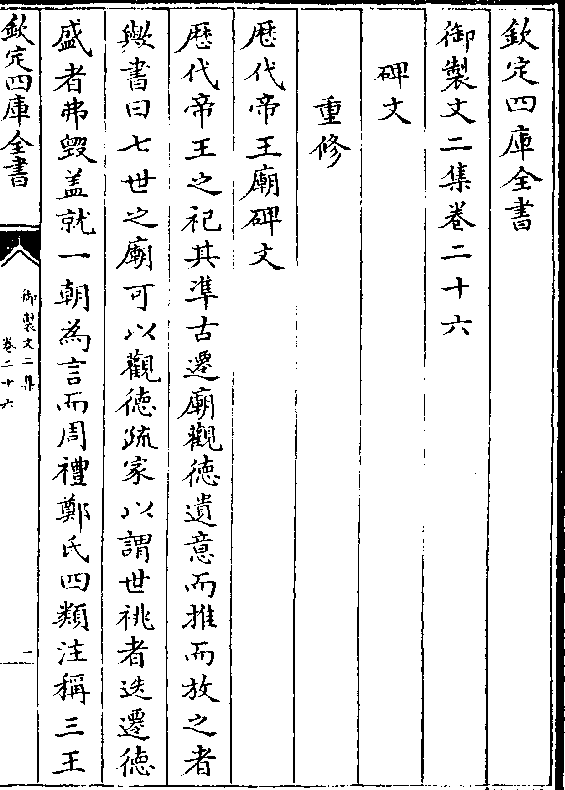 欽定四庫全書
御製文二集卷二十六
碑文
重修
歴代帝王廟碑文
歴代帝王之祀其準古遷廟觀徳遺意而推而放之者
歟書曰七世之廟可以觀徳疏家以謂世祧者迭遷徳
盛者弗毁盖就一朝為言而周禮鄭氏四類注稱三王
欽定四庫全書
御製文二集
卷二十六
一